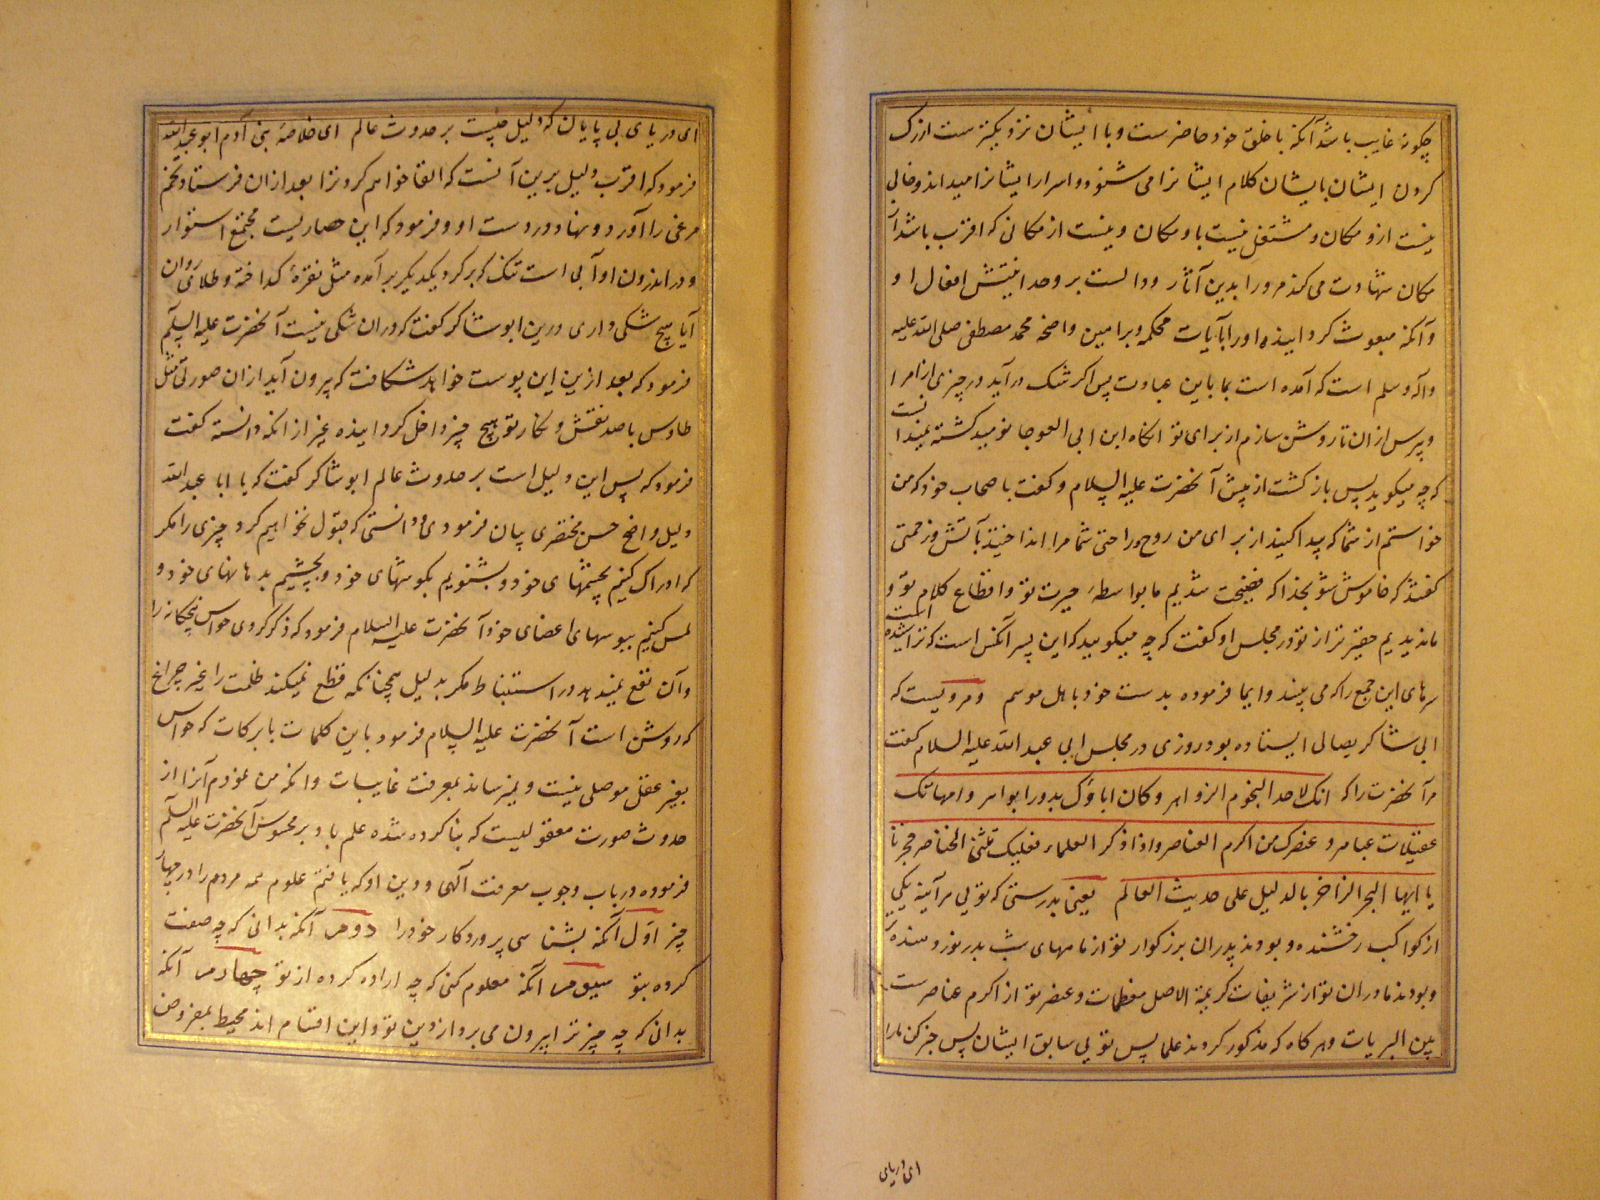 چگونه غایب باشد آنکه با خلق خود حاضرست و با ایشان نزدیکترست از رک
کردن ایشان بایشان کلام ایشانرا می شنود و اسرار ایشانرا میداند و خالی
نیست ازو مکان و مشتغل نیست باو مکان و نیست از مکانی که اقرب باشد از
مکان شهادت می کند مرورا بدین آثار و دالست بر وحدانیتش افعال او
و آنکه مبعوث گردانیده اورا بآیات محکمه و براهین واضحه محمد مصطفی صلی الله علیه
و آله و سلم است که آمده است بما باین عبادت پس اگر شک در آید در چیزی از امر او
بپرس از ان تا روشن سازم از برای تو انکاه ابن ابی العوجا نومید کشته نمیدانست
که چه میکوید پس بازکشت از پیش آنحضرت علیه السلام و کفت باصحاب خود که من
خواستم از شما که پیدا کنید از برای من روح و راحتی شما مرا انداختید بآتش و زحمتی
کفتند که خاموش شو بخدا که فضیحت شدیم ما بواسطهٔ حیرت تو و انقطاع کلام تو و
ما ندیدیم حقیرتر از تو در مجلس او کفت که چه میکویید که این پسر آنکس است که تراشیده است
سرهای این جمع را که می بینند و ایما فرموده بدست خود باهل موسم و مرویست که
ابی شاکر یصالی ایستاده بود روزی در مجلس ابی عبد الله علیه السلام کفت
مر آنحضرت را که انک لاحد النجوم الزواهر و کان اباؤک بدورا بواهر و امهاتک
عقیلات عباهر و عنصرک من اکرم العناصر و اذا ذکر العلماء فعلیک تثنی الخناصر فخبرنا
یا ایها البحر الزاخر بالدلیل علی حدیث العالم یعنی بدرستی که تویی مرآینه یکی
از کواکب رخشنده و بودند پدران بزرکوار تو از ماههای شب بدر نور دهنده
و بودند مادران تو از شریفات کریمة الاصل معظمات و عنصر تو از اکرم عناصرست
بین البریات و هرکاه که مذکور کردند علما پس تویی سابق ایشان پس خبر کن مارا
ای دریای
ای دریای بی پایان که دلیل چیست بر حدوث عالم ای خلاصهٔ بنی آدم ابو عبد الله
فرمود که اقرب دلیل برین آنست که القا خواهم کرد ترا بعد از ان فرستاد تخم
مرغی را آورد و نهاد در دست او و فرمود که این حصاریست مجتمع استوار
و در اندرون او آبی است تنک که بر کرد یکدیگر بر آمده مثل نقرهٔ کداخته و طلای روان
آیا هیچ شکی داری درین ابو شاکر کفت که در ان شکی نیست آنحضرت علیه السلام
فرمود که بعد ازین این پوست خواهد شکافت که بیرون آید از ان صورتی مثل
طاوس با صد نقش و نکار تو هیچ چیز داخل کردانیده غیر از انکه دانسته کفت
فرمود که پس این دلیل است بر حدوث عالم ابو شاکر کفت که یا ابا عبد الله
دلیل واضح حسن مختصری بیان فرمودی و دانستی که قبول نخواهیم کرد چیزی را مکر
که ادراک کنیم بچشمهای خود و بشنویم بکوشهای خود و بچشیم بدهانهای خود و
لمس کنیم ببوسهای اعضای خود آنحضرت علیه السلام فرمود که ذکر کردی حواس پنجکانه را
و آن نفع نمیدهد در استنباط مکر بدلیل همچنانکه قطع نمیکند ظلمت را غیر چراغ
که روشن است آنحضرت علیه السلام فرمود باین کلمات بابرکات که حواس
بغیر عقل موصلی نیست و نمیرساند بمعرفت غایبات و انکه من نمودم آنرا از
حدوث صورت معقولیست که بنا کرده شده علم باو بر محسوس آنحضرت علیه السلام
فرموده در باب وجوب معرفت الهی و دین او که یافتم علوم همه مردم را در چهار
چیز اول آنکه بشناسی پروردکار خود را دوم آنکه بدانی که چه صنعت
کرده بتو سیوم آنکه معلوم کنی که چه اراده کرده از تو چهارم آنکه
بدانی که چه چیز ترا بیرون می برد از دین تو و این اقسام اند محیط بمفروض